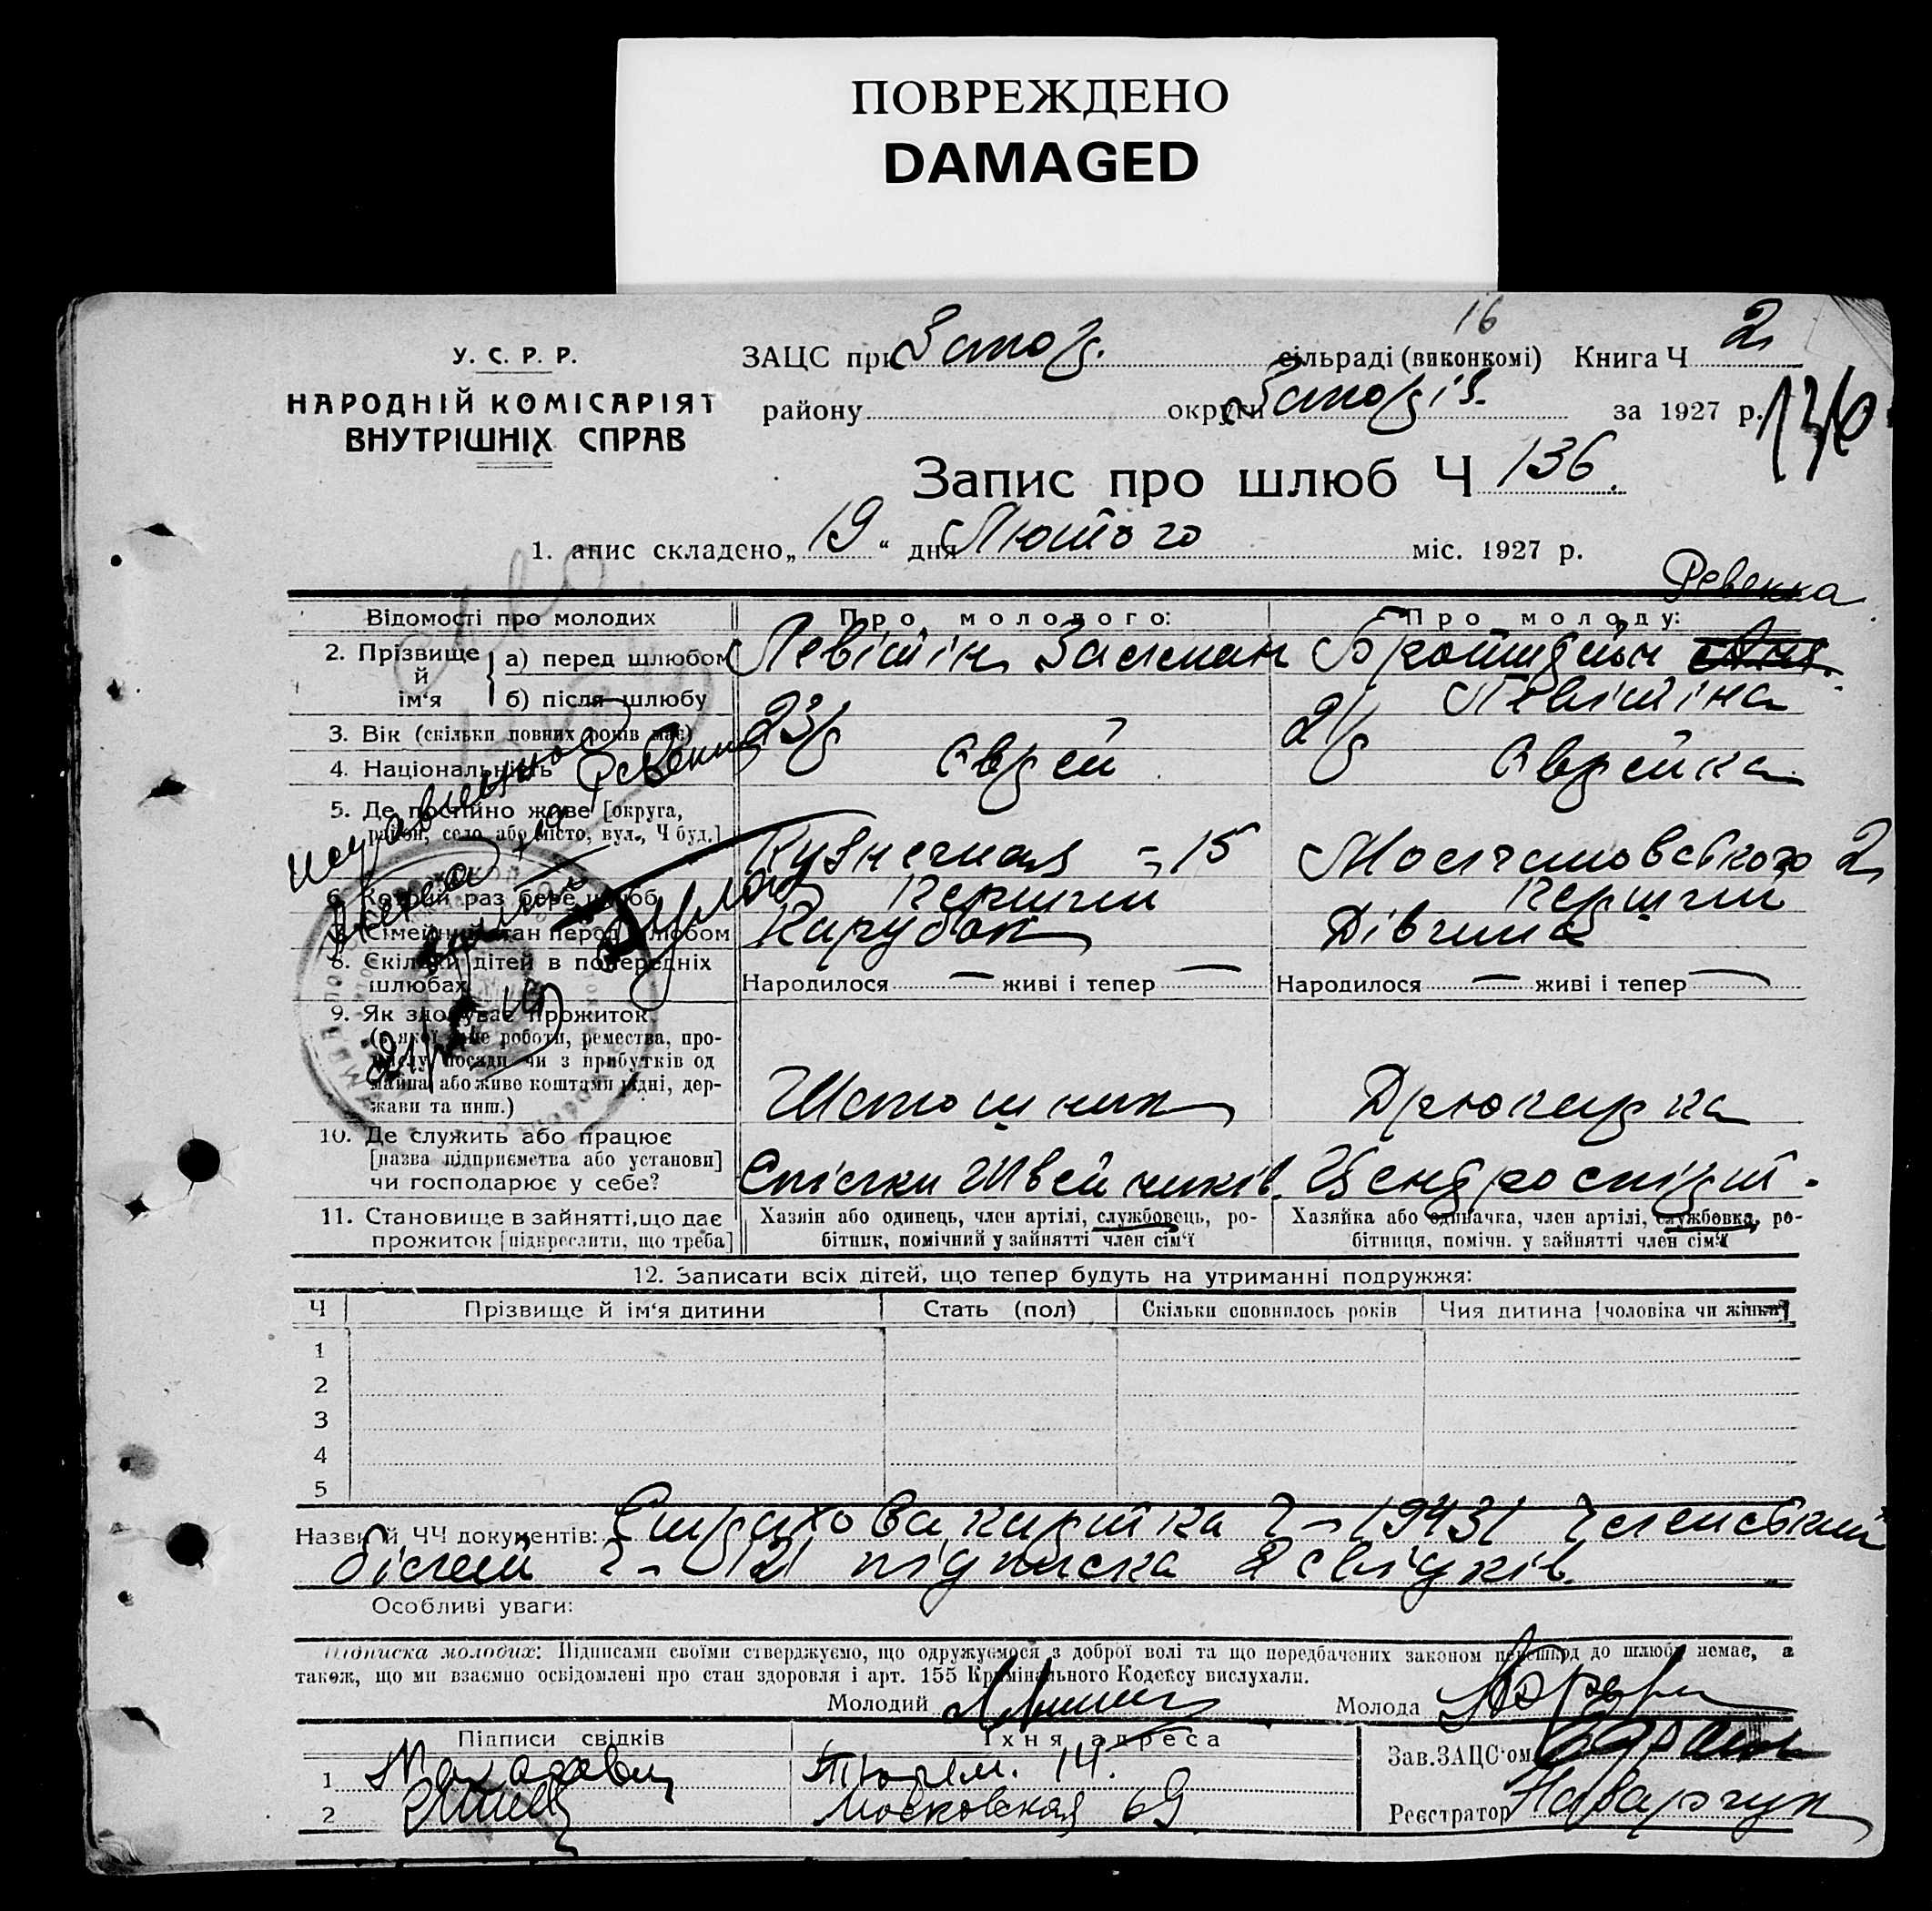 ПОВРЕЖДЕНО
DAMAGED
16
У. С. Р. Р.
НАРОДНІЙ КОМІСАРІЯТ
ВНУТРІШНІХ СПРАВ
ЗАЦС при Запоз. сільраді (виконкомі) Книга Ч 2
району округи за 1927 р.
Запис про шлюб Ч 136.
1. апис складено „ 19 “ дня Лютого міс. 1927 р.
Ревекка
Відомості про молодих Про молодого: Про молоду:
2. Прізвище й ім‘я
а) перед шлюбом Левітін Залман Бронштейн
б) після шлюбу Левітіна
3. Вік (скільки повних років має) 23 р 21 р
4. Національність Єврей Єврейка
5. Де постійно живе [округа, район, село або місто, вул., Ч буд.] Кузнечная - 15 2
6. Котрий раз бере шлюб Перший Перший
7. Сімейний стан перед шлюбом Парубок Дівчина
8. Скільки дітей в попередніх шлюбах Народилося — живі і тепер — Народилося — живі і тепер —
9. Як здобуває прожиток
(з якої саме роботи, ремества, промислу, посади чи з прибутків од майна або живе коштами рідні, держави та инш.) Шапошник Друкарка
10. Де служить або працює
[назва підприємства або установи]
чи господарює у себе? Спілки Швейників.
11. Становище в зайнятті, що дає
прожиток [підкреслити, що треба]
Хазяін або одинець, член артілі, службовець, ро-
бітник, помічний у зайнятті член сім‘ї
Хазяйка або одиначка, член артілі, службовка, ро-
бітниця, помічн. у зайнятті член сім‘ї
исправленное
Ревекка
12. Записати всіх дітей, що тепер будуть на утриманні подружжя:
Ч Прізвище й ім‘я дитини Стать (пол) Скільки сповнилось років Чия дитина [чоловіка чи жінки]
1
2
3
4
5
Назви й ЧЧ документів: Страхова картка Ч - 19431 Членський
білет Ч - підписка 2 свідків.
Особливі уваги:
Підписка молодих: Підписами своїми стверджуємо, що одружуємося з доброї волі та що передбачених законом перешкод до шлюбу немає, а
також, що ми взаємно освідомлені про стан здоровля і арт. 155 Кримінального Кодексу вислухали.
Молодий Молода
Підписи свідків Їхня адреса
1 Тюрем. 14.
2 Московская 69
Зав. ЗАЦС‘ом
Реєстратор